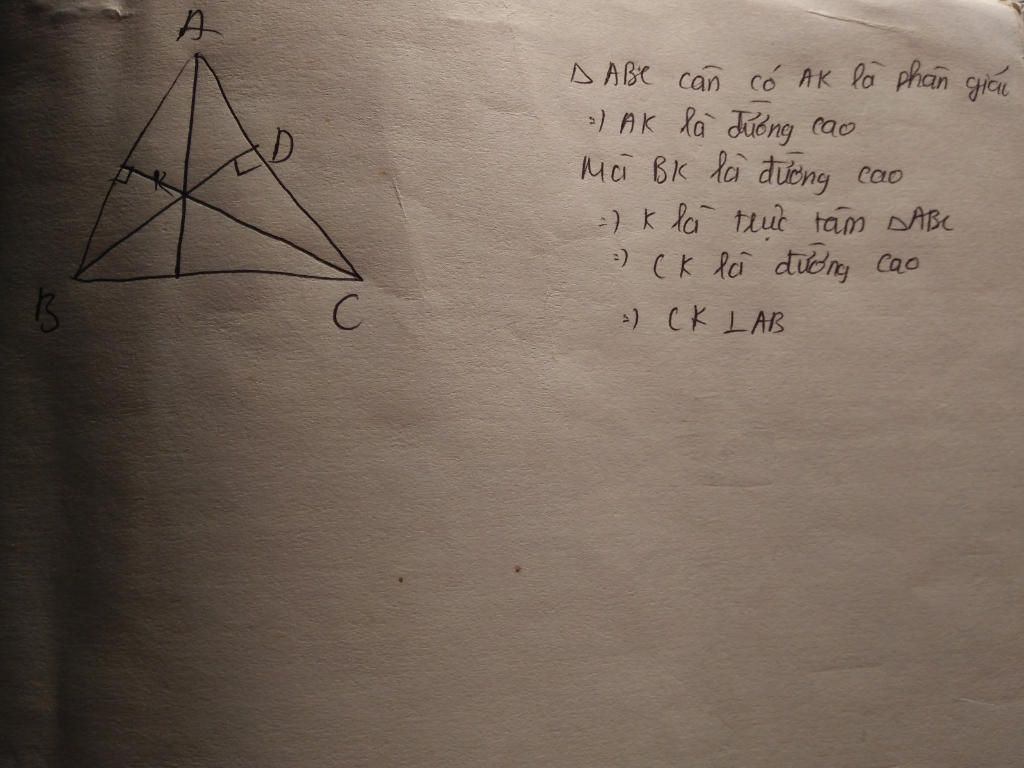 A
D
K
B
C
Δ ABC cân có AK là phân giác
=) AK là đường cao
Mà BK là đường cao
=) K là trực tâm ΔABC
=) CK là đường cao
=) CK ⊥ AB